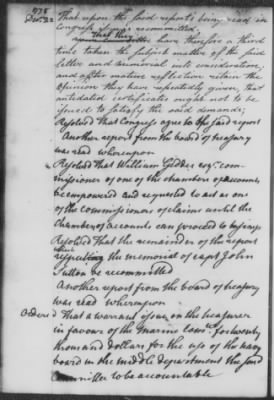 1778
Dec. 22
That upon the said report's being read in
Congress it was recommitted.
have therefore a third
time taken the subject matter of the said
letter and memorial into consideration,
and after mature reflection retain the
opinion they have repeatedly given, that
antedated certificates ought not to be
issued to satisfy the said demands;
Resolved that Congress agree to the said report
Another report from the board of treasury
was read whereupon
Resolved that William Geddes esqr. com-
missioner of one of the chambers of accounts,
be empowered and requested to act as one
of the commissioners of claims until the
chamber of accounts can proceed to business
Resolved That the remainder of the report
respecting the memorial of capt John
Sutton be recommitted
Another report from the board of treasury
was read whereupon
Ordered That a warrant issue on the treasurer
in favour of the marine comtee. for twenty
thousand dollars for the use of the navy
board in the middle department the said
committee to be accountable